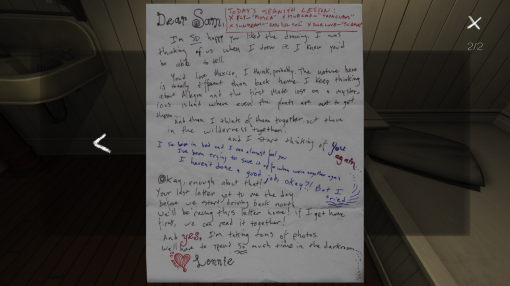 2/2
Dear Sam,
TODAY'S SPANISH LESSON:
I'm so happy you liked the drawing. I was
thinking of us when I drew it. I knew you'd
be able to tell.
You'd love Mexico, I think, probably. The nature here
is really different than back home. I keep thinking
about Allegra and the First Mate lost on a myster-
ious island where even the plants are out to get
them.
And then I think of them together out there
in the wilderness together.
and I start thinking of you
again.
I so here in bed and I can almost feel you
I've been trying to save it up for when we're together again
I haven't done a good job, okay?! But I
tried.
Okay, enough about that!
Your last letter got to me the day
before we start driving back north
we'll be racing this letter home! if I get home
first, we can read it together!
And yes, I'm taking tons of photos.
We'll have to spend so much time in the darkroom.
Lonnie